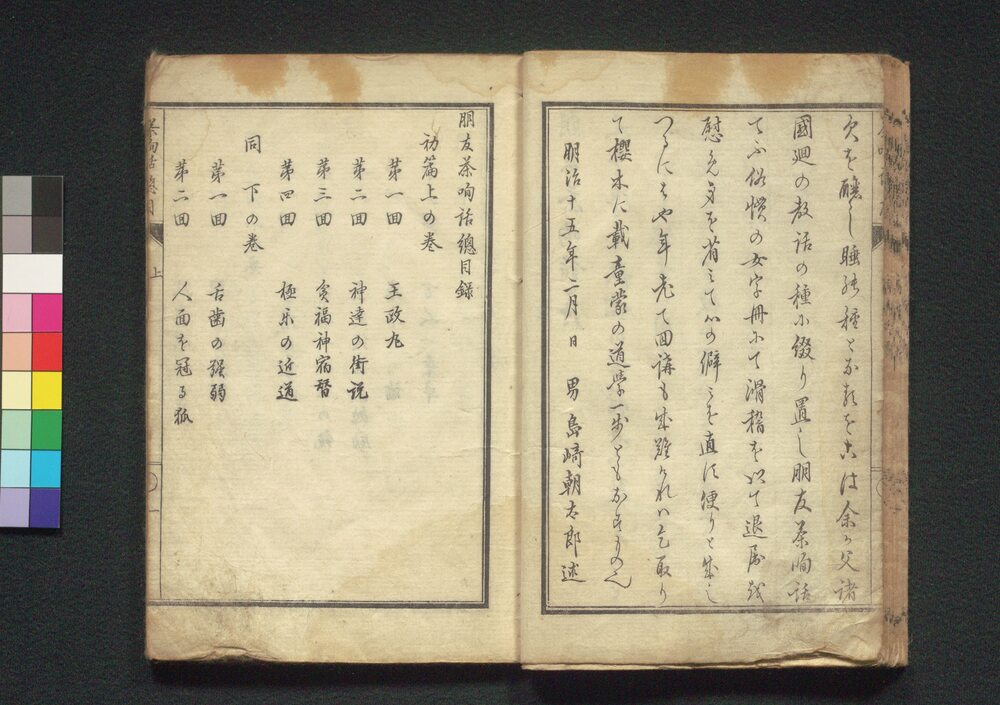 欠を醸し睡眠種となれをこは余か父諸
國廻の教話の種に綴り置し朋友茶呴話
てふ俗慣の女字冊にて滑稽を以て退屈を
慰め身を省ミて心の僻ミを直に便りと成し
つるにはや年老て回講も成難けれハ乞取り
て櫻木に載童蒙の道学一歩ともなすものへ
明治十五年二月日 男 島﨑朝太郎述
朋友茶呴話總目録
初篇上の巻
第一回 王政丸
第二回 神達の街説
第三回 貧福神宿替
第四回 極樂の近道
同 下の巻
第一回 舌歯の強弱
第二回 人面を冠る狐
上
一